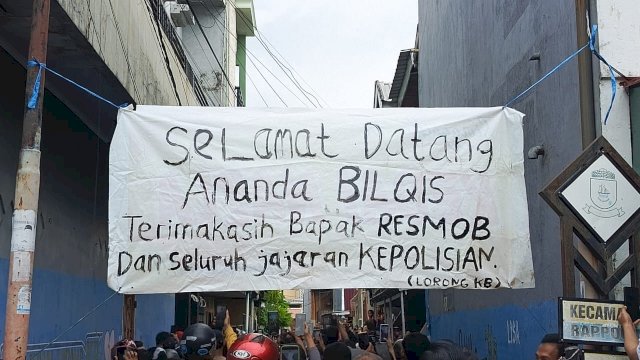 SeLamat Datang
Ananda BILQIS
Terimakasih Bapak RESMOB
Dan Seluruh jajaran KEPOLISIAN.
(LORONG KB)
KECAMA
RAPPO